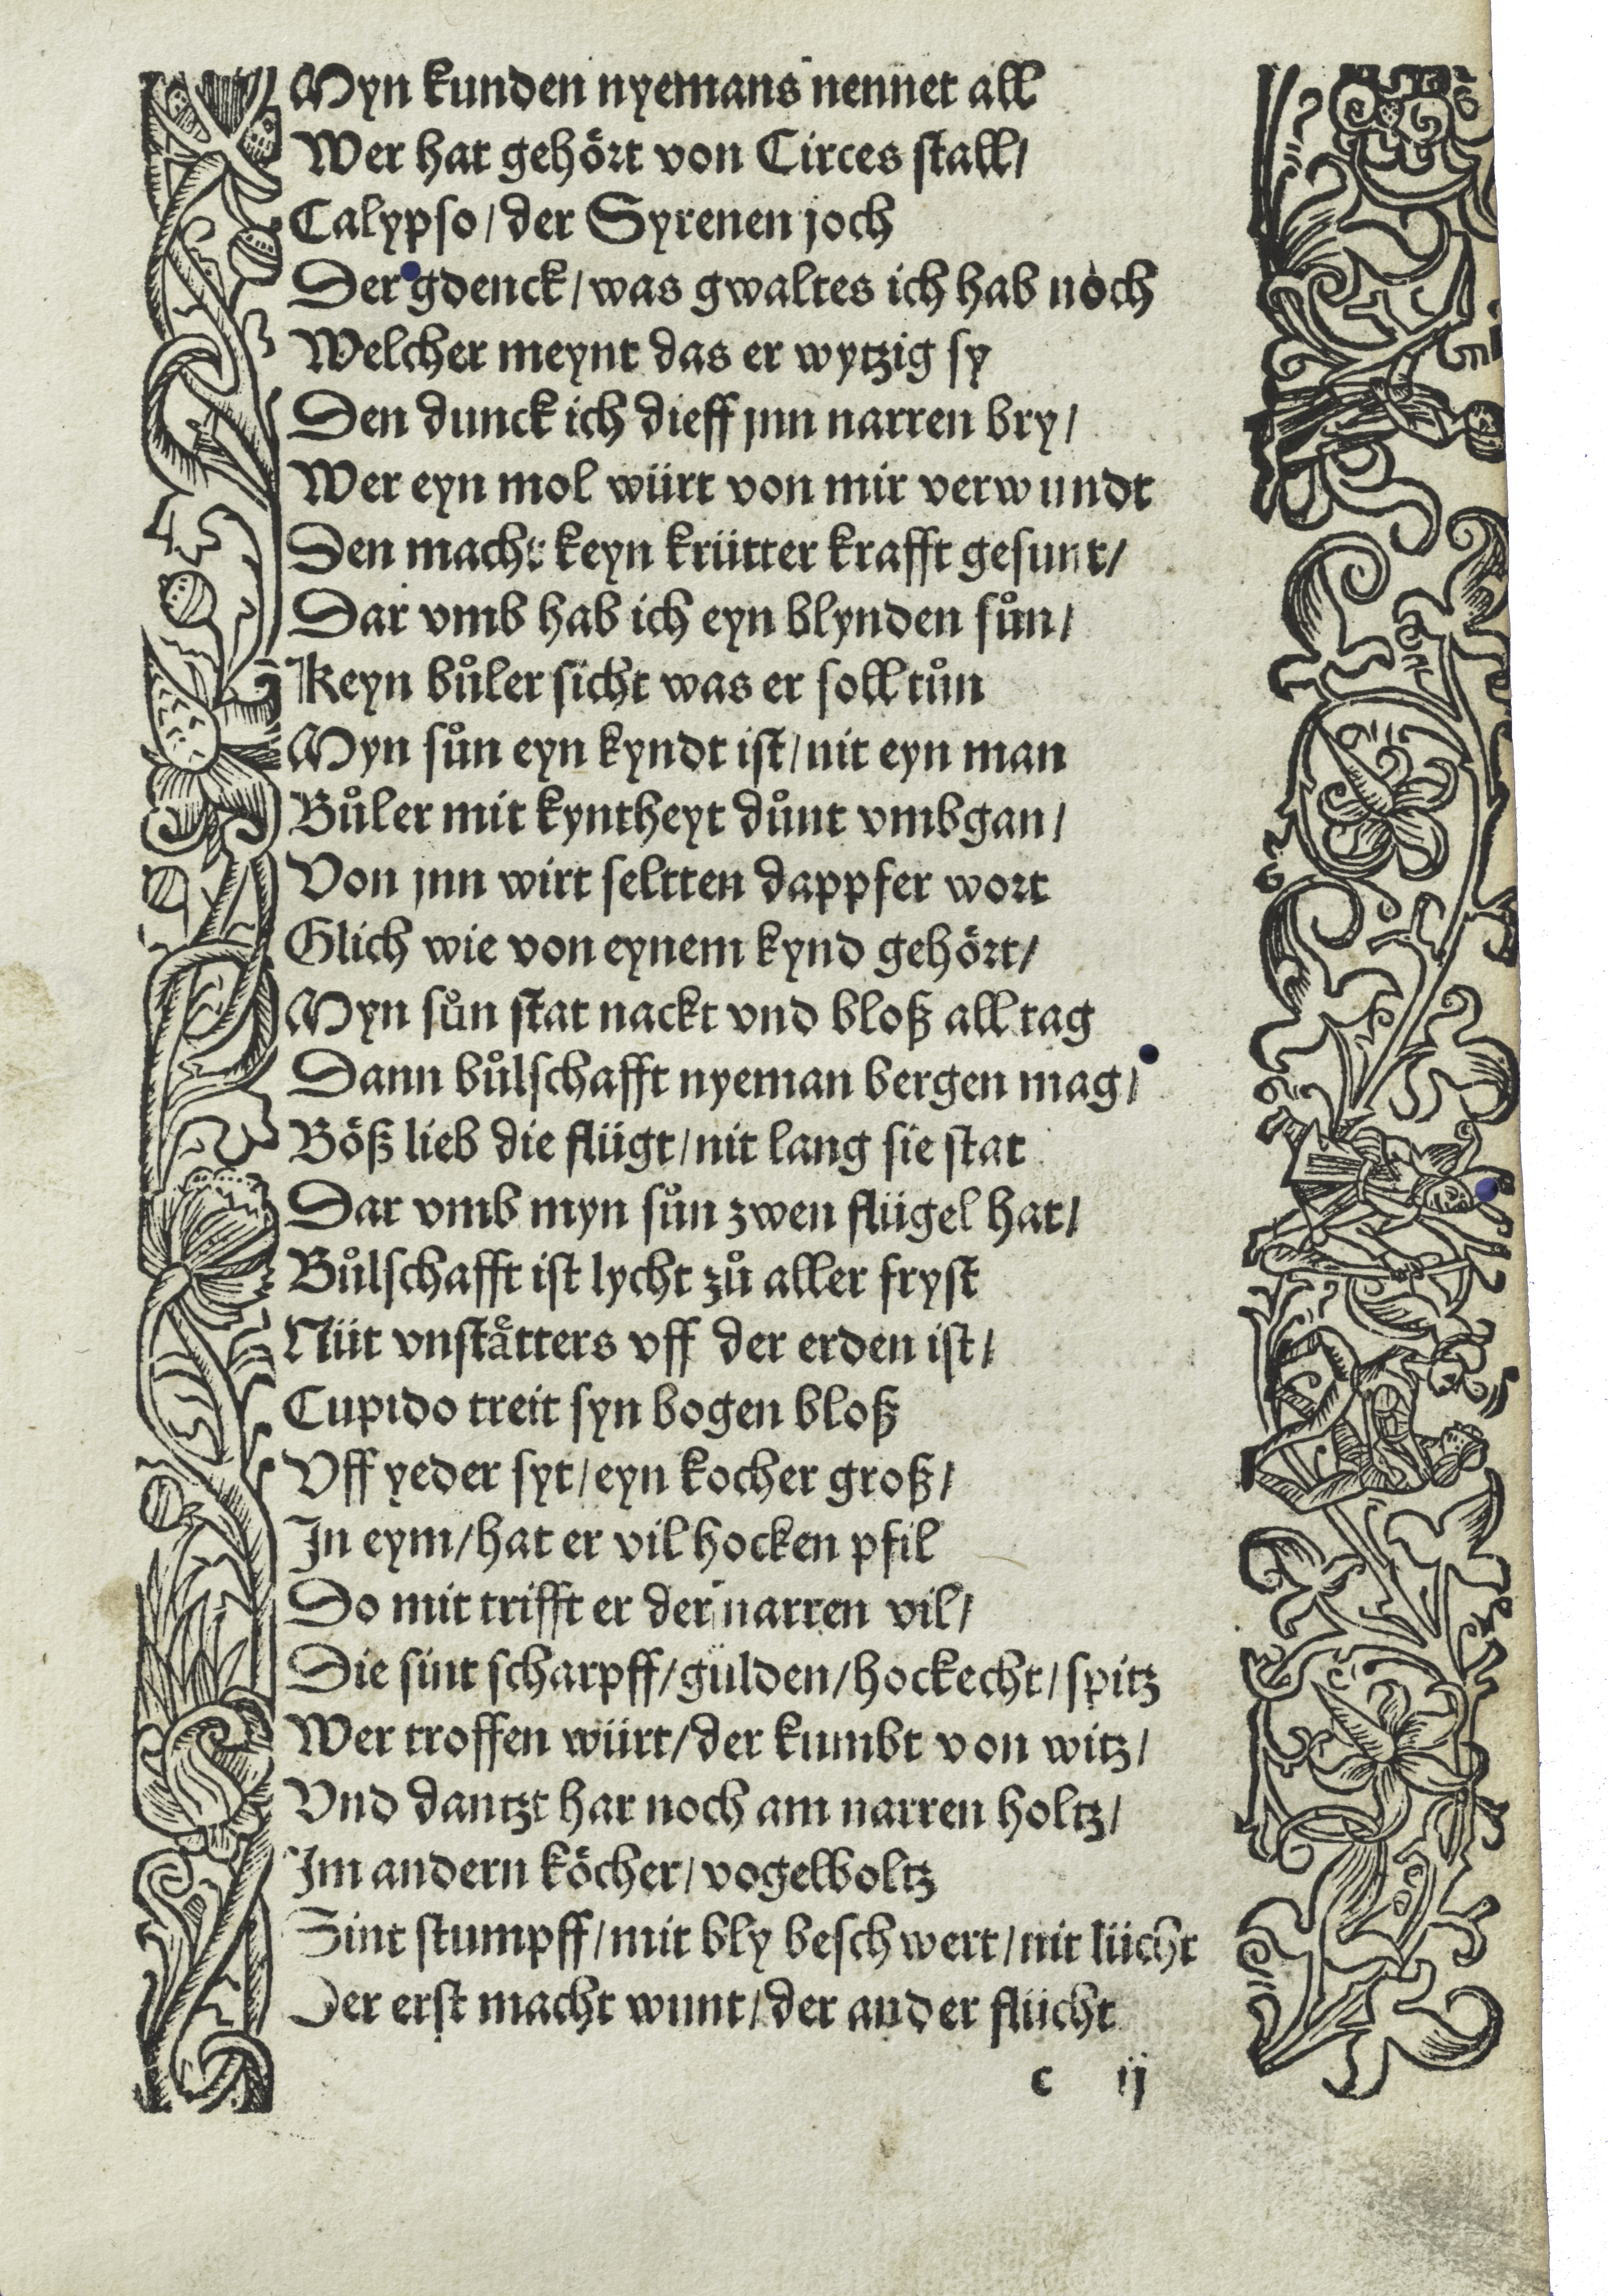 Myn kunden nyemans nennet all
Wer hat gehoͤrt von Circes stall/
Calypso/ der Syrenen joch
Der gdenck/ was gwaltes ich hab noch
Welcher meynt das er wytzig sy
Den dunck ich dieff jnn narren bry/
Wer eyn mol würt von mir verwundt
Den macht keyn krütter krafft gesunt/
Dar vmb hab ich eyn blynden suͦn/
Keyn buͦler sicht was er soll tuͦn
Myn suͦn eyn kyndt ist/ nit eyn man
Buͦler mit kyntheyt duͦnt vmbgan/
Von jnn wirt seltten dappfer wort
Glich wie von eynem kynd gehoͤrt/
Myn suͦn stat nackt vnd bloß all tag
Dann buͦlschafft nyeman bergen mag/
Boͤß lieb die flügt/ nit lang sie stat
Dar vmb myn suͦn zwen flügel hat/
Buͦlschafft ist lycht zuͦ aller fryst
Nüt vnstaͤtters vff der erden ist/
Cupido treit syn bogen bloß
Vff yeder syt/ eyn kocher groß/
In eym/ hat er vil hocken pfil
Do mit trifft er der narren vil/
Die sint scharpff/ gülden/ hockecht/ spitz
Wer troffen würt/ der kumbt von witz/
Vnd dantzt har noch am narren holtz/
Im andern koͤcher/ vogelboltz
Sint stumpff/ mit bly beschwert/ nit lücht
Der erst macht wunt/ der ander flücht
c ij